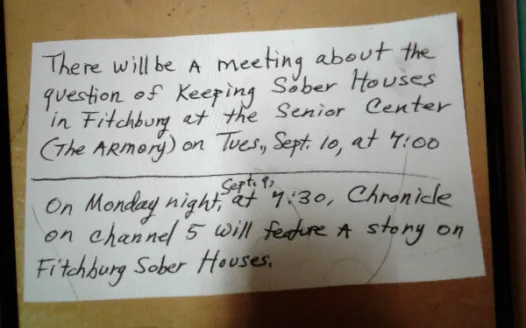 There will be A meeting about the
question of Keeping Sober Houses
in Fitchburg at the Senior Center
(The ARMORY) on Tues., Sept. 10, at 7:00
On Monday night, Sept. 9, at 7:30, Chronicle
on channel 5 will feature A story on
Fitchburg Sober Houses.